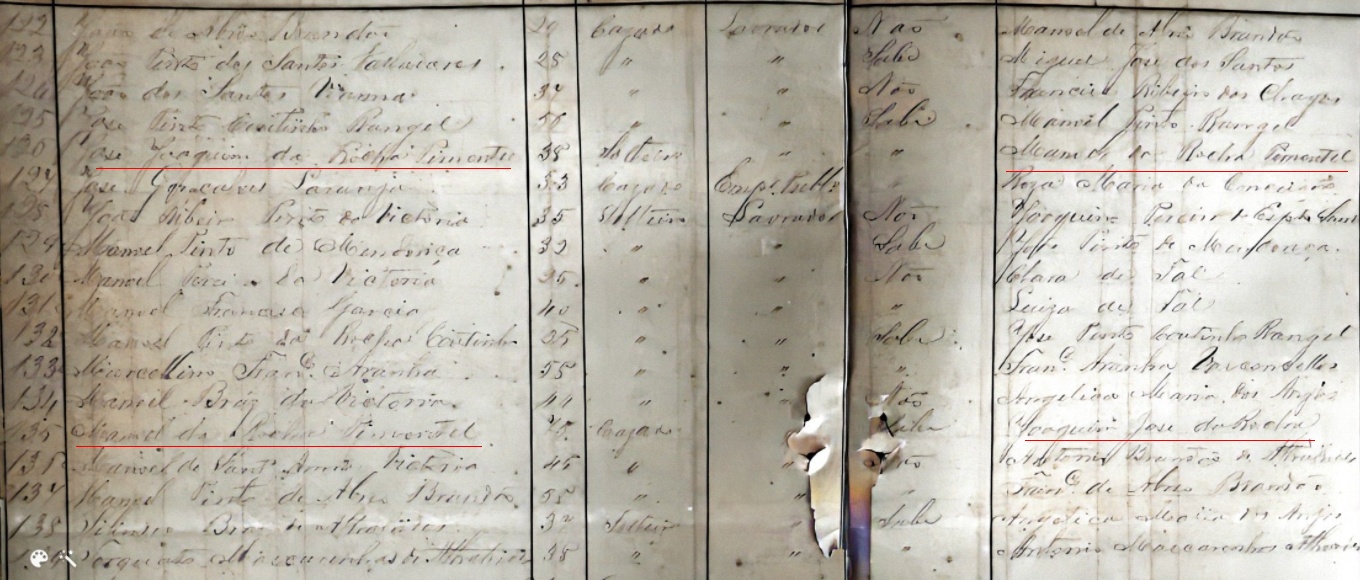 122 João de Abreu Brandão 29 Cazado Lavrador Não Manoel de Abreu Brandão
123 João Pinto dos Santos 25 " " Sabe Miguel José dos Santos
124 João dos Santos Vianna 37 " " Não Francisco Ribeiro das Chagas
125 José Pinto Coutinho Rangel 50 " " Sabe Manoel Pinto Rangel
126 José Joaquim da Rocha Pimentel 38 Solteiro " " Manoel da Rocha Pimentel
127 José Gonçalves Laranja 53 Cazado Emp. Publ. " Roza Maria da Conceição
128 João Ribeiro Pinto da Victoria 35 Solteiro Lavrador Não Joaquim Pereira do Esp.to Santo
129 Manoel Pinto de Mendonça 32 " " Sabe José Pinto de Mendonça
130 Manoel da Victoria 25 " " Não Clara de Tal
131 Manoel Francisco Garcia 40 " " " Luiza de Tal
132 Manoel Pinto da Rocha Coutinho 25 " " Sabe José Pinto Coutinho Rangel
133 Marcellino Fran.co Aranha 55 " " " Fran.co Aranha Vasconcellos
134 Manoel Braz da Victoria 44 " " Não Angelica Maria dos Anjos
135 Manoel da Rocha Pimentel Cazado Sabe Joaquim José da Rocha
136 Manoel de Sant'Anna Victoria 45 " Não Antonio Brandão de
137 Manoel Pinto de Abreu Brandão 55 " " " Fran.co de Abreu Brandão
138 Braz de 37 Solteiro " Sabe Angelica Maria dos Anjos
Torquato Mascarenhas de 38 " " " Antonio Mascarenhas